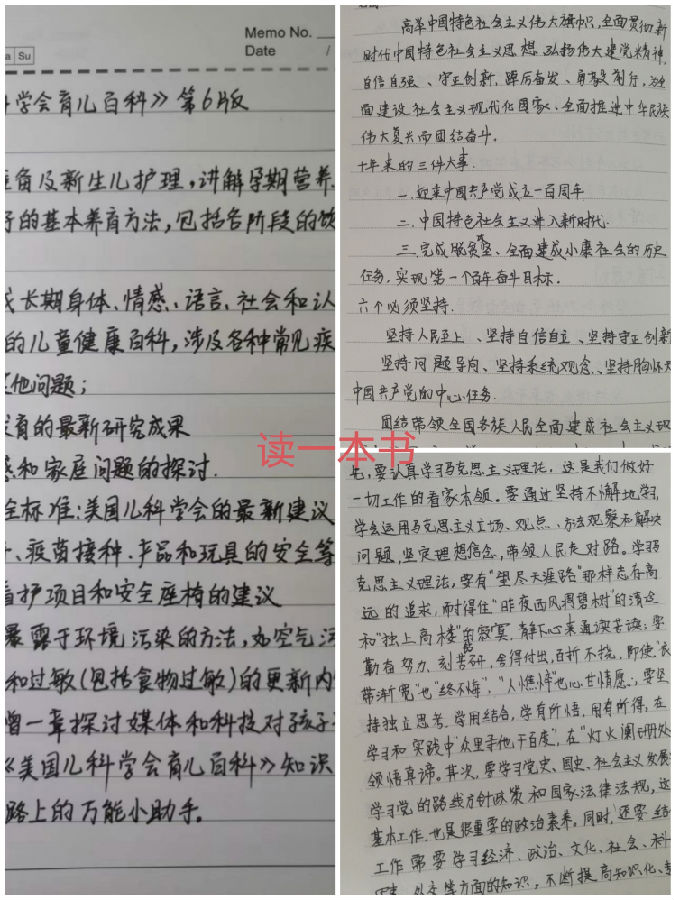 Memo No.
Date /
a Su
学会育儿百科》第6版
负及新生儿护理,讲解孕期营养
的基本养育方法,包括各阶段的饮
长期身体、情感、语言、社会和认
的儿童健康百科,涉及各种常见疾
他问题;
育的最新研究成果
和家庭问题的探讨.
全标准:美国儿科学会的最新建议
、疫苗接种、产品和玩具的安全等
护项目和安全座椅的建议
暴露于环境污染的方法,如空气污
和过敏(包括食物过敏)的更新内
增一章探讨媒体和科技对孩子
《美国儿科学会育儿百科》知识
路上的万能小助手。
高举中国特色社会主义伟大旗帜,全面贯彻新
时代中国特色社会主义思想,弘扬伟大建党精神,
自信自强、守正创新,踔厉奋发、勇毅前行,为全
面建设社会主义现代化国家、全面推进中华民族
伟大复兴而团结奋斗.
十年来的三件大事.
一.迎来中国共产党成立一百周年
二.中国特色社会主义进入新时代.
三.完成脱贫攻坚、全面建成小康社会的历史
任务,实现第一个百年奋斗目标.
六个必须坚持.
坚持人民至上、坚持自信自立、坚持守正创新
坚持问题导向、坚持系统观念、坚持胸怀天
中国共产党的中心任务.
团结带领全国各族人民全面建成社会主义现
读一本书
先,要认真学习马克思主义理论,这是我们做好
一切工作的看家本领。要通过坚持不懈地学习
学会运用马克思主义立场、观点、方法观察和解决
问题,坚定理想信念,带领人民走对路。学习马
克思主义理论,要有"望尽天涯路"那样志存高
远的追求,耐得住"昨夜西风凋碧树"的清冷
和"独上高楼"的寂寞,静下心来通读苦读;要
勤奋努力,刻苦钻研,舍得付出,百折不挠,即使"衣
带渐宽"也"终不悔","人憔悴"也心甘情愿;要坚
持独立思考,学用结合,学有所悟,用有所得,在
学习和实践中"众里寻他千百度",在"灯火阑珊处"
领悟真谛。其次,要学习党史、国史、社会主义发展
学习党的路线方针政策和国家法律法规,这
基本工作,也是很重要的政治素养。同时,还要结
工作需要学习经济、政治、文化、社会、科
外交等方面的知识,不断提高知识化、专